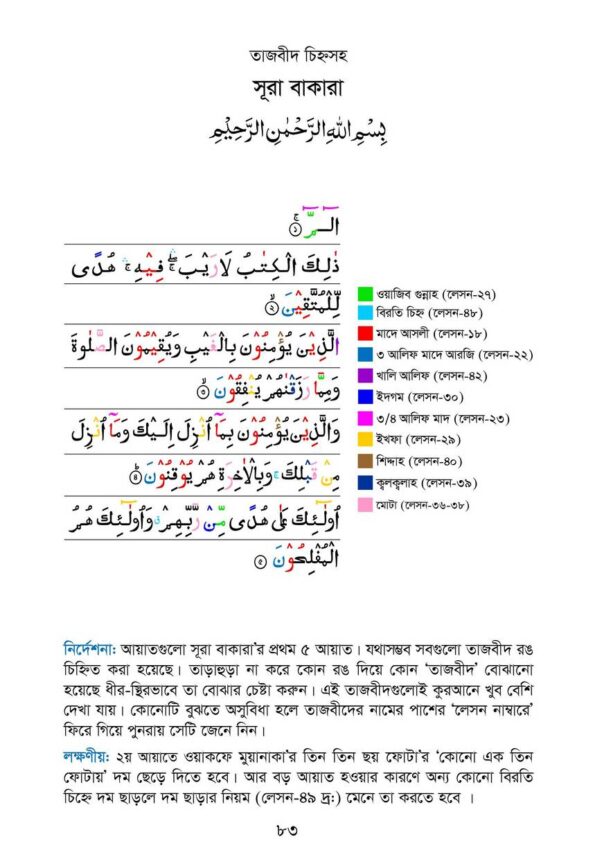 তাজবীদ চিহ্নসহ
সূরা বাকারা
بِسْمِ اللهِ الرَّحْمٰنِ الرَّحِيْمِ
الٓـمّٓ ۚ ۝۱
ذٰلِكَ الْكِتٰبُ لَا رَيْبَ ۛۖ فِيْهِ ۛۚ هُدًى
لِّلْمُتَّقِيْنَ ۙ ۝۲
الَّذِيْنَ يُؤْمِنُوْنَ بِالْغَيْبِ وَيُقِيْمُوْنَ الصَّلٰوةَ
وَمِمَّا رَزَقْنٰهُمْ يُنْفِقُوْنَ ۙ ۝۳
وَالَّذِيْنَ يُؤْمِنُوْنَ بِمَآ اُنْزِلَ اِلَيْكَ وَمَآ اُنْزِلَ
مِنْ قَبْلِكَ ۚ وَبِالْاٰخِرَةِ هُمْ يُوْقِنُوْنَ ؕ ۝۴
اُولٰٓئِكَ عَلٰى هُدًى مِّنْ رَّبِّهِمْ ۗ وَاُولٰٓئِكَ هُمُ
الْمُفْلِحُوْنَ ۝۵
ওয়াজিব গুন্নাহ (লেসন-২৭)
বিরতি চিহ্ন (লেসন-৪৮)
মাদে আসলী (লেসন-১৮)
৩ আলিফ মাদে আরজি (লেসন-২২)
খালি আলিফ (লেসন-৪২)
ইদগম (লেসন-৩০)
৩/৪ আলিফ মাদ (লেসন-২৩)
ইখফা (লেসন-২৯)
শিদ্দাহ (লেসন-৪০)
ক্বলক্বলাহ (লেসন-৩৯)
মোটা (লেসন-৩৬-৩৮)
নির্দেশনা: আয়াতগুলো সূরা বাকারা’র প্রথম ৫ আয়াত। যথাসম্ভব সবগুলো তাজবীদ রঙ
চিহ্নিত করা হয়েছে। তাড়াহুড়া না করে কোন রঙ দিয়ে কোন ‘তাজবীদ’ বোঝানো
হয়েছে ধীর-স্থিরভাবে তা বোঝার চেষ্টা করুন। এই তাজবীদগুলোই কুরআনে খুব বেশি
দেখা যায়। কোনোটি বুঝতে অসুবিধা হলে তাজবীদের নামের পাশের ‘লেসন নাম্বারে’
ফিরে গিয়ে পুনরায় সেটি জেনে নিন।
লক্ষণীয়: ২য় আয়াতে ওয়াকফে মুয়ানাকা’র তিন তিন ছয় ফোটা’র ‘কোনো এক তিন
ফোটায়’ দম ছেড়ে দিতে হবে। আর বড় আয়াত হওয়ার কারণে অন্য কোনো বিরতি
চিহ্নে দম ছাড়লে দম ছাড়ার নিয়ম (লেসন-৪৯ দ্র:) মেনে তা করতে হবে ।
৮৩